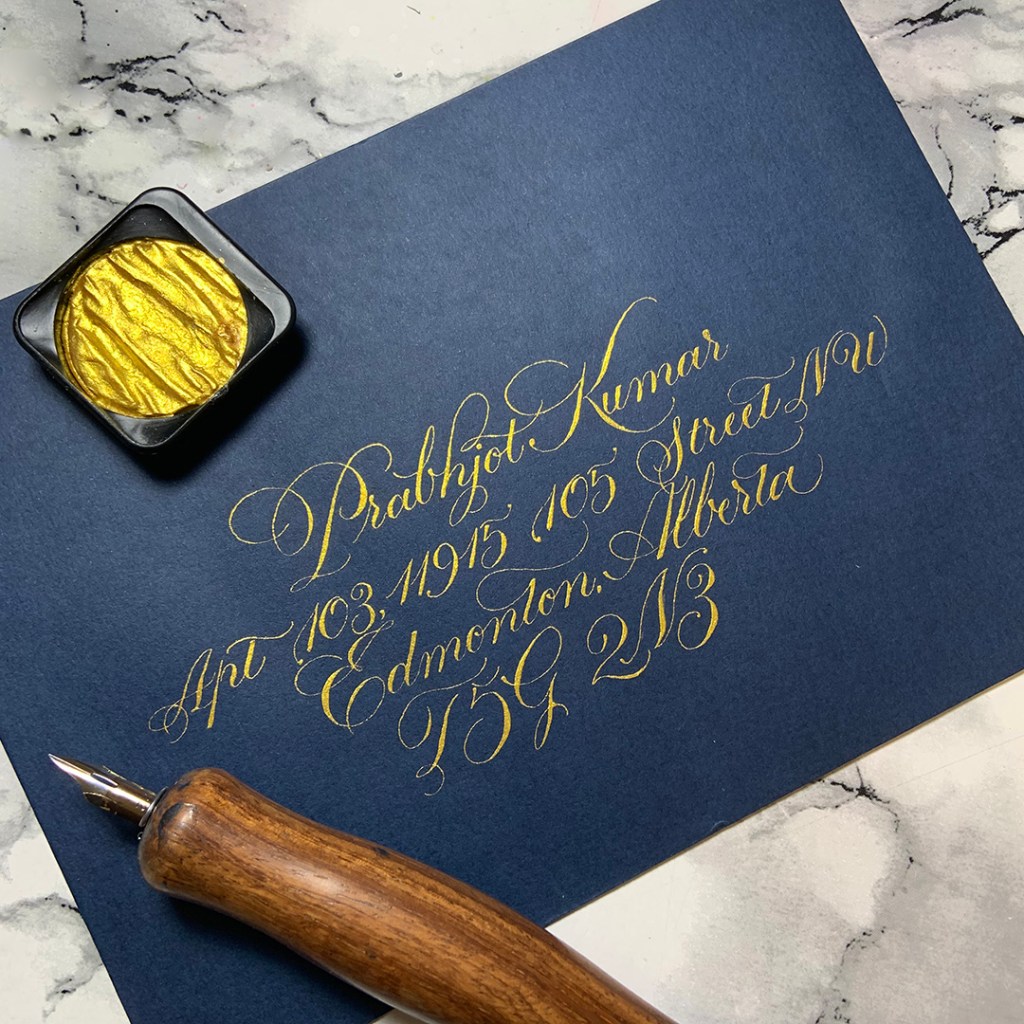 Prabhjot Kumar
Apt 103, 11915 105 Street NW
Edmonton, Alberta
T5G 2N3